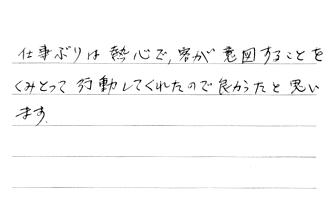 仕事ぶりは熱心で,客が意図することを
くみとって行動してくれたので良かったと思い
ます.